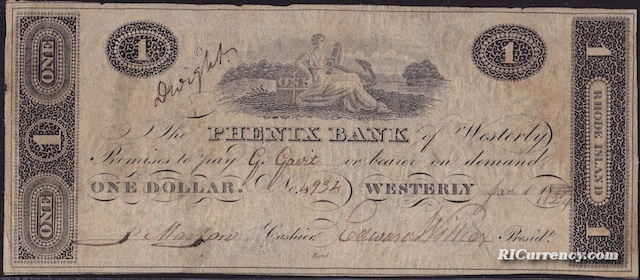 ONE
1
ONE
1
Dwight.
ONE
1
1
RHODE ISLAND
1
The PHENIX BANK of Westerly
Promises to pay G. Gavit or bearer on demand
ONE DOLLAR. No. 4934 WESTERLY Jan 1 18
Cashier Presidt.
RICurrency.com